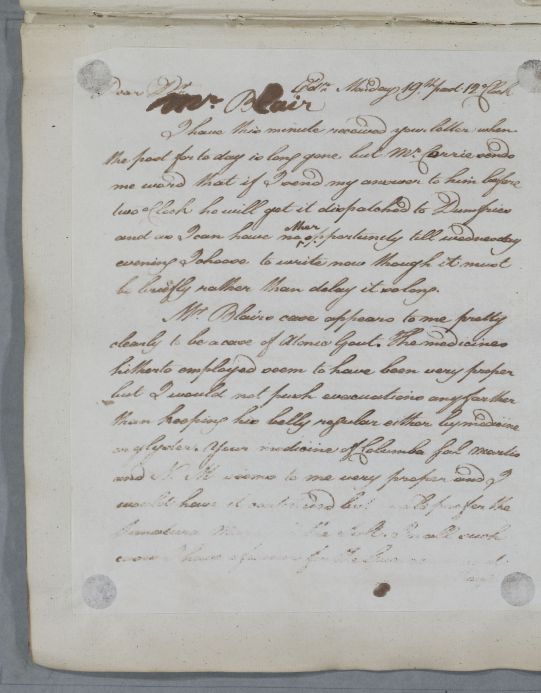 Dear Dr. Edr. Monday 19th past 12 o'Clock
Mr. Blair
I have this minute received your letter when
the post for to day is long gone but Mr. Corrie sends
me word that if I send my answer to him before
two o'Clock he will get it dispatched to Dumfries
and as I can have no other opportunity till wednesday
evening I choose to write now though it must
be briefly rather than delay it so long.
Mr. Blairs case appears to me pretty
clearly to be a case of Atonic Gout. The medicines
hitherto employed seem to have been very proper
but I would not push evacuations any farther
than keeping his belly regular either by medicine
or glyster. Your medicine of Columba Sal martis
and N. M. seems to me very proper and I
would have it continued but for the
Small such
have for the